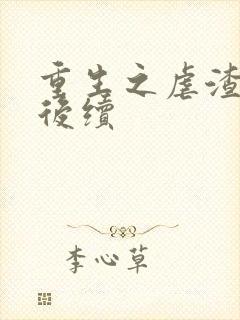 重生之虐渣
後續
李心草